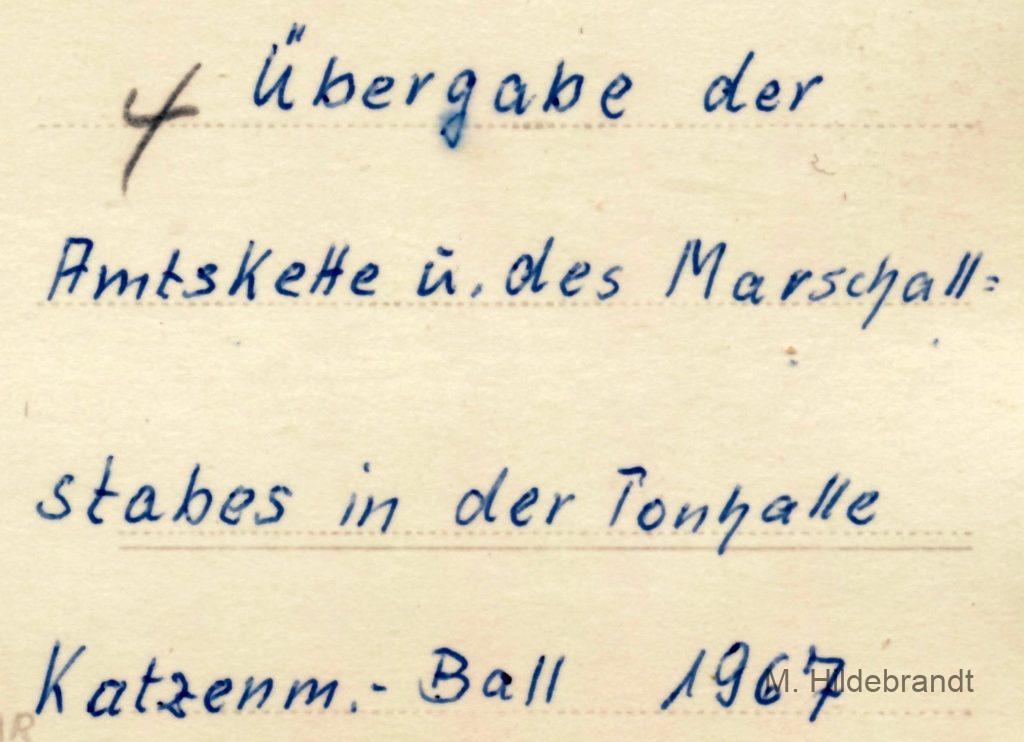 4 Übergabe der
Amtskette ü. des Marschall=
stabes in der Tonhalle
Katzenm.- Ball 1967
M. Hildebrandt